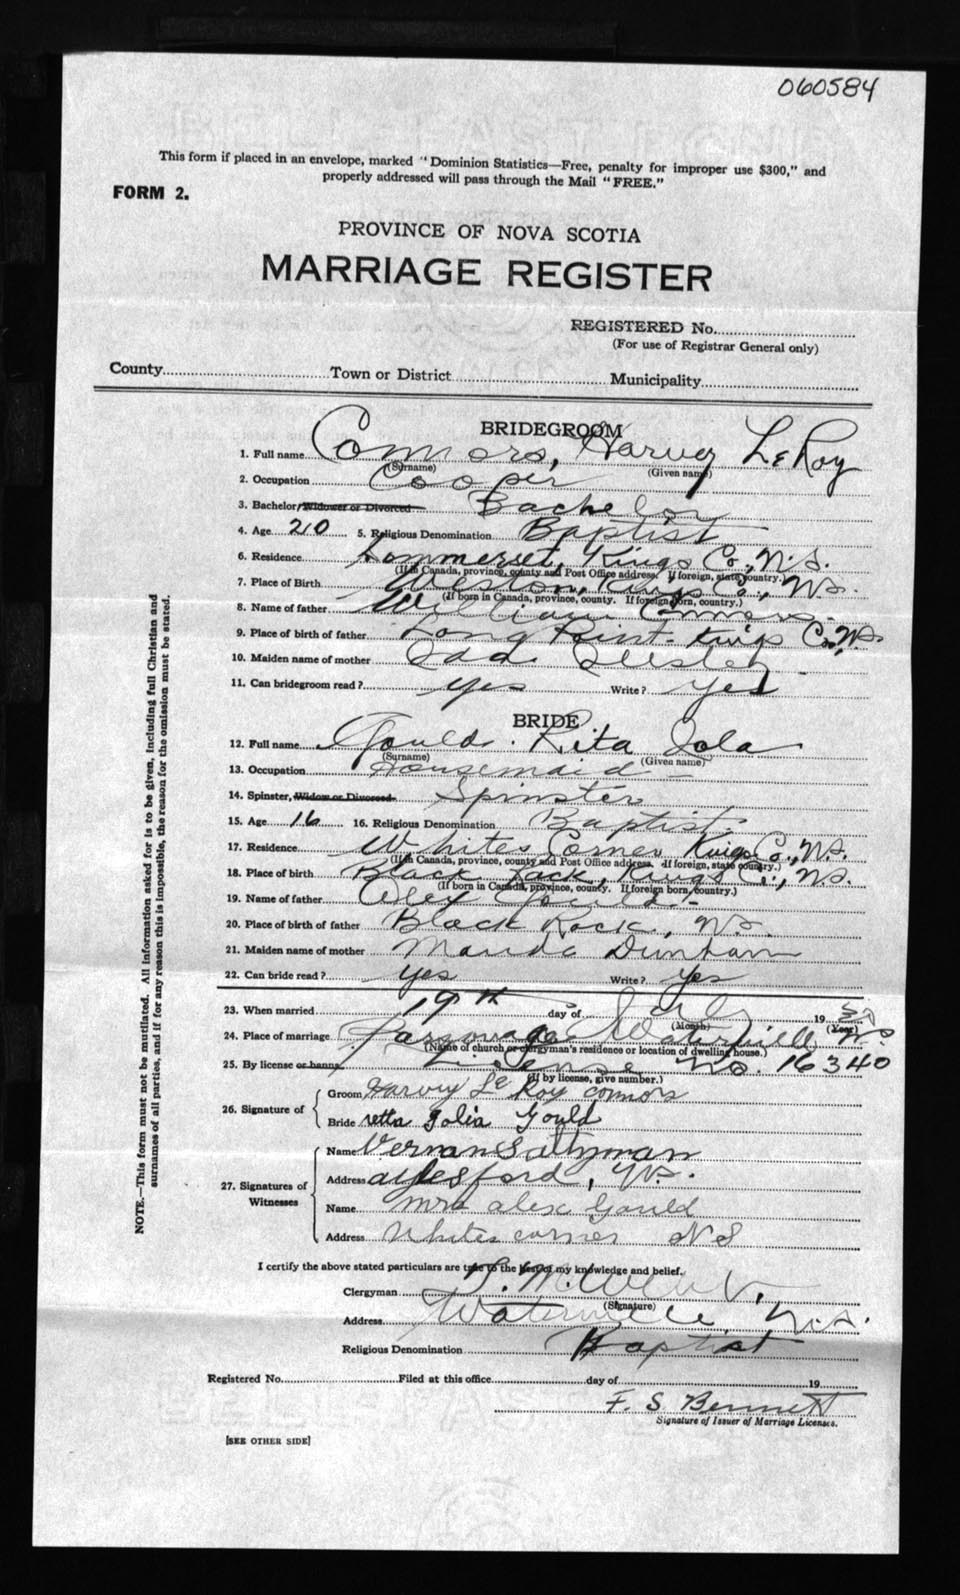 060584
This form if placed in an envelope, marked "Dominion Statistics—Free, penalty for improper use $300," and
properly addressed will pass through the Mail "FREE."
FORM 2.
PROVINCE OF NOVA SCOTIA
MARRIAGE REGISTER
REGISTERED No.
(For use of Registrar General only)
County Town or District Municipality
BRIDEGROOM
1. Full name Connors, Harvey LeRoy
(Surname) (Given name)
2. Occupation Cooper
3. Bachelor, Widower or Divorced Bachelor
4. Age 20 5. Religious Denomination Baptist
6. Residence Sommerset, Kings Co., N.S.
(If in Canada, province, county and Post Office address. If foreign, state country.)
7. Place of Birth Weston, Kings Co., N.S.
(If born in Canada, province, county. If foreign born, country.)
8. Name of father William Connors
9. Place of birth of father Long Point Kings Co. N.S.
10. Maiden name of mother
11. Can bridegroom read? yes Write? yes
BRIDE
12. Full name Gould, Rita Iola
(Surname) (Given name)
13. Occupation Housemaid
14. Spinster, Widow or Divorced Spinster
15. Age 16 16. Religious Denomination Baptist
17. Residence Whites Corner Kings Co., N.S.
(If in Canada, province, county and Post Office address. If foreign, state country.)
18. Place of birth Black Rock, Kings Co., N.S.
(If born in Canada, province, county. If foreign born, country.)
19. Name of father Gould
20. Place of birth of father Black Rock, N.S.
21. Maiden name of mother Maude Dunham
22. Can bride read? yes Write? yes
23. When married 19th day of July 19
(Month) (Year)
24. Place of marriage Parsonage Waterville N.S.
(Name of church or clergyman's residence or location of dwelling house.)
25. By license or banns License No. 16340
(If by license, give number.)
26. Signature of
Groom Harvey Le Roy Connors
Bride retta Iolia Gould
27. Signatures of Witnesses
Name Vernan Saltzman
Address aylesford, N.S.
Name Mrs alex Gould
Address Whites corner N S
I certify the above stated particulars are true to the best of my knowledge and belief.
Clergyman
(Signature)
Address Waterville N.S.
Religious Denomination Baptist
Registered No. Filed at this office day of 19
F. S. Bennett
Signature of Issuer of Marriage Licenses.
[SEE OTHER SIDE]
NOTE.—This form must not be mutilated. All information asked for is to be given, including full Christian and
surnames of all parties, and if for any reason this is impossible, the reason for the omission must be stated.